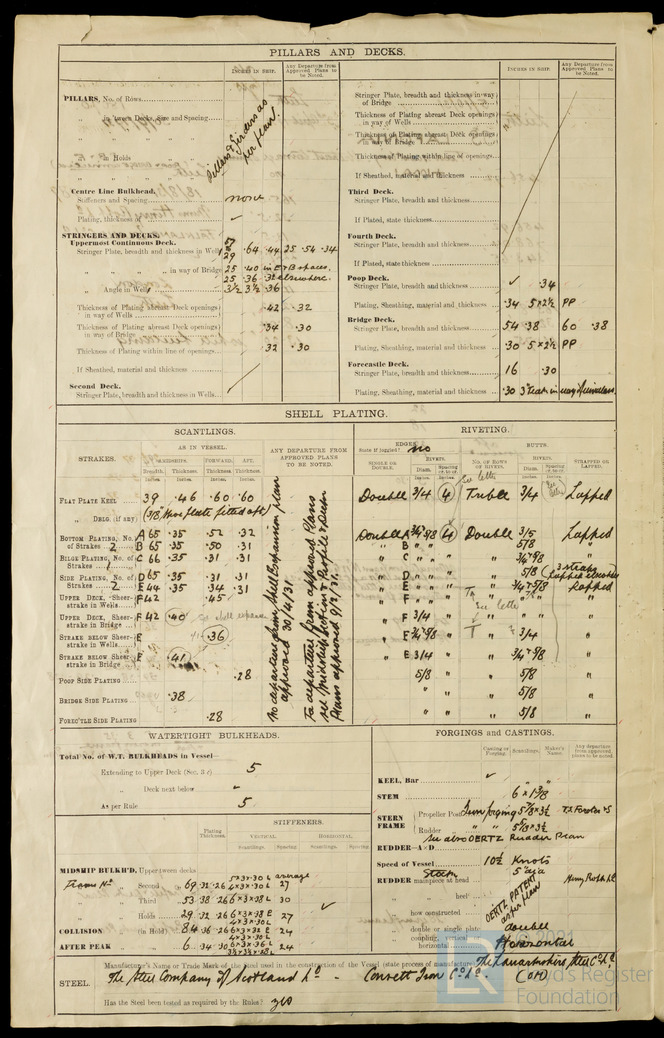 PILLARS AND DECKS.
INCHES IN SHIP.
Any Departure from Approved Plans to be Noted.
PILLARS, No. of Rows
" in 'tween Decks, Size and Spacing
" in Holds
Pillars & Girders as per plan
Centre Line Bulkhead.
Stiffeners and Spacing none
Plating, thickness of ✓
STRINGERS AND DECKS.
Uppermost Continuous Deck.
Stringer Plate, breadth and thickness in Wells .64 .44 25 .54 .34
" " in way of Bridge 25 .40 in E & B spaces.
25 .36 .32 elsewhere.
" Angle in Wells 3½ 3½ .36
Thickness of Plating abreast Deck openings in way of Wells .42 .32
Thickness of Plating abreast Deck openings in way of Bridge .34 .30
Thickness of Plating within line of openings .32 .30
If Sheathed, material and thickness
Second Deck.
Stringer Plate, breadth and thickness in Wells
INCHES IN SHIP.
Any Departure from Approved Plans to be Noted.
Stringer Plate, breadth and thickness in way of Bridge
Thickness of Plating abreast Deck openings in way of Wells
Thickness of Plating abreast Deck openings in way of Bridge
Thickness of Plating within line of openings
If Sheathed, material and thickness
Third Deck.
Stringer Plate, breadth and thickness
If Plated, state thickness
Fourth Deck.
Stringer Plate, breadth and thickness
If Plated, state thickness
Poop Deck.
Stringer Plate, breadth and thickness ✓ .34
Plating, Sheathing, material and thickness .34 5 × 2½ PP
Bridge Deck.
Stringer Plate, breadth and thickness 54 .38 60 .38
Plating, Sheathing, material and thickness .30 5 × 2½ PP
Forecastle Deck.
Stringer Plate, breadth and thickness 16 .30
Plating, Sheathing, material and thickness .30 3" teak in way of windlass.
SHELL PLATING.
SCANTLINGS.
STRAKES.
AS IN VESSEL.
AMIDSHIPS. FORWARD. AFT.
Breadth. Thickness. Thickness. Thickness.
Inches. Inches. Inches. Inches.
ANY DEPARTURE FROM APPROVED PLANS TO BE NOTED.
FLAT PLATE KEEL 39 .46 .60 .60
" DBLG. (if any)
BOTTOM PLATING, No. of Strakes 2 A 65 .35 .52 .32
B 65 .35 .50 .31
BILGE PLATING, No. of Strakes 1 C 66 .35 .31 .31
SIDE PLATING, No. of Strakes 2 D 65 .35 .31 .31
E 44 .35 .34 .31
UPPER DECK, Sheerstrake in Wells F 42 .45
UPPER DECK, Sheerstrake in Bridge F 42 .40
STRAKE BELOW Sheerstrake in Wells E .36
STRAKE BELOW Sheerstrake in Bridge .41
POOP SIDE PLATING .28
BRIDGE SIDE PLATING .38
FORECTLE SIDE PLATING .28
No departure from Shell Expansion plan approved 30/4/31
For departure from approved Plans see Midship Section & Profile & Deck Plans approved 9/2/31.
RIVETING.
EDGES.
State if joggled? no
SINGLE OR DOUBLE.
RIVETS.
Diam. Spacing cr. to cr.
BUTTS.
NO. OF ROWS OF RIVETS.
RIVETS.
Diam. Spacing cr. to cr.
STRAPPED OR LAPPED.
see letter
Double 3/4 4 Treble 3/4 Lapped
Double A 3/4 & 7/8 4 Double 3/5 Lapped
" B " " 5/8 "
" C " " 3/4 & 7/8 "
" D " " 5/8 (3 straps lapped elsewhere
" E " " Lapped
" F " " "
see letter
" F 3/4 " "
" E 3/4 & 7/8 " 3/4 "
" E 3/4 " 3/4 & 7/8 "
5/8 " 5/8 "
" " 5/8 "
" " 5/8 "
WATERTIGHT BULKHEADS.
Total No. of W.T. BULKHEADS in Vessel—
Extending to Upper Deck (Sec. 3 c) 5
" Deck next below "
As per Rule 5
STIFFENERS.
Plating Thickness.
VERTICAL. HORIZONTAL.
Scantlings. Spacing. Scantlings. Spacing.
MIDSHIP BULKH'D, Upper 'tween decks 5 × 3 × .30 L average
Frame No " Second " 69 .32 .26 4 × 3 × .30 L 27
" Third " 53 .38 .26 6 × 3 × .38 L 30 ✓
" Holds 29 .32 .26 6 × 3 × .38 E 27
4 × 3 × .30 L
COLLISION " (in Hold) 84 .36 .26 6 × 3 × .32 E 24
4 × 3 × .30 L
AFTER PEAK " 6 .34 .30 6 × 3 × .36 L 24
FORGINGS and CASTINGS.
Casting or Forging. Scantlings. Maker's Name. Any departure from approved plans to be noted.
KEEL, Bar ✓
STEM 6 × 1 3/8
STERN FRAME Propeller Post Iron forging 5 7/8 × 3½
Rudder " " " 5/8 × 3½
see also OERTZ Rudder Plan
RUDDER—A × D
Speed of Vessel 10½ Knots
RUDDER mainpiece at head Steam 5" dia
" " heel
" how constructed OERTZ PATENT as per plan
" double or single plate double
" coupling, vertical or horizontal Horizontal
STEEL.
Manufacturer's Name or Trade Mark of the Steel used in the construction of the Vessel (state process of manufacture) The Lanarkshire Steel Co. Ld.
The Steel Company of Scotland Ld — Consett Iron Co. Ld. (OH)
Has the Steel been tested as required by the Rules? yes
© 2021
Lloyd's Register Foundation